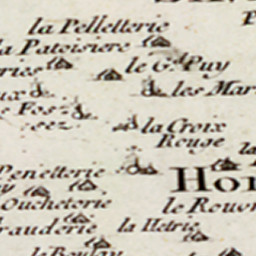 la Pelletterie
la Patoisiere
ries
le G.d Puy
ux
les Mar
e Fos-
sez
la Croix
Rouge
la
Penetterie
Hon
y
Oucheterie
le Rouo
rauderie
la Hetrie
la Boulay